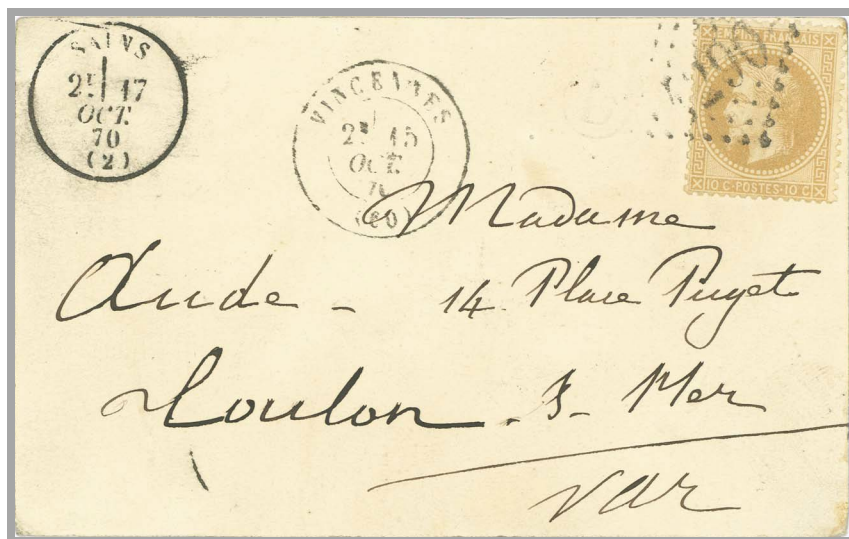 SAINS
2E 17
OCT.
70
(2)
VINCENNES
2E 15
OCT.
70
(80)
EMPIRE FRANÇAIS
10 C-POSTES-10 C
Madame
Aude - 14 Place Puget
Toulon - s - Mer
Var